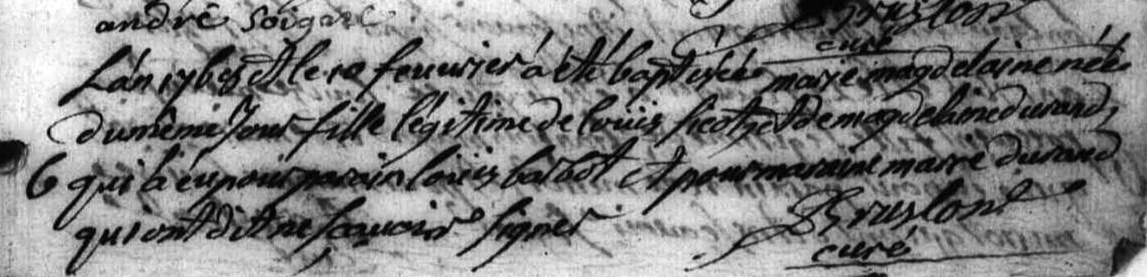 andré soigare
curé
L'an 1765 et le 10 feuurier à été baptisée marie magdelaine née
du même jour fille légitime de louis et de magdelaine durand
6 qui à eu pour parain louis babot et pour maraine marie durand
qui ont dit ne sçauoir signer
curé